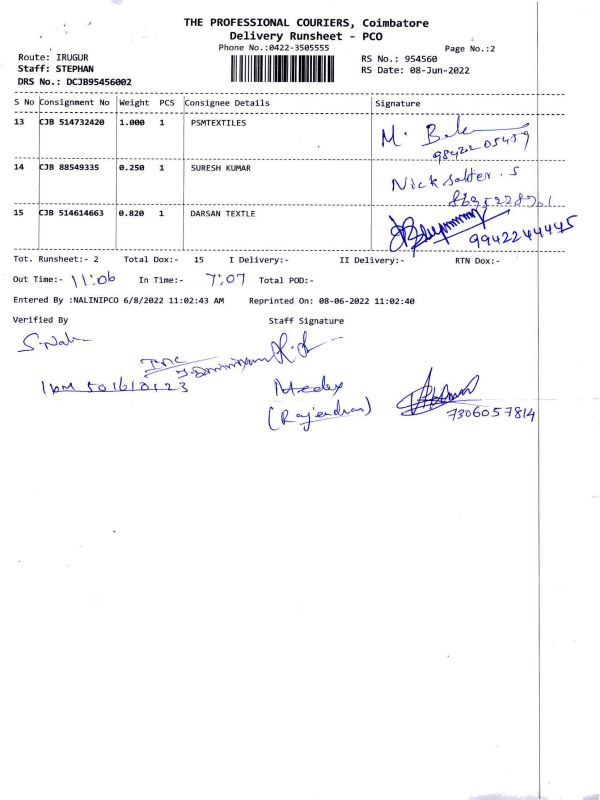 THE PROFESSIONAL COURIERS, Coimbatore
Delivery Runsheet - PCO
Phone No.:0422-3505555
Page No.:2
Route: IRUGUR
RS No.: 954560
Staff: STEPHAN
RS Date: 08-Jun-2022
DRS No.: DCJB95456002
S No Consignment No Weight PCS Consignee Details Signature
13 CJB 514732420 1.000 1 PSMTEXTILES
M.
98422 05459
14 CJB 88549335 0.250 1 SURESH KUMAR
Nick
15 CJB 514614663 0.820 1 DARSAN TEXTLE
9942244445
Tot. Runsheet:- 2 Total Dox:- 15 I Delivery:- II Delivery:- RTN Dox:-
Out Time:- 11:06 In Time:- 7:07 Total POD:-
Entered By :NALINIPCO 6/8/2022 11:02:43 AM Reprinted On: 08-06-2022 11:02:40
Verified By Staff Signature
Medex
(Rajendran)
7306057814